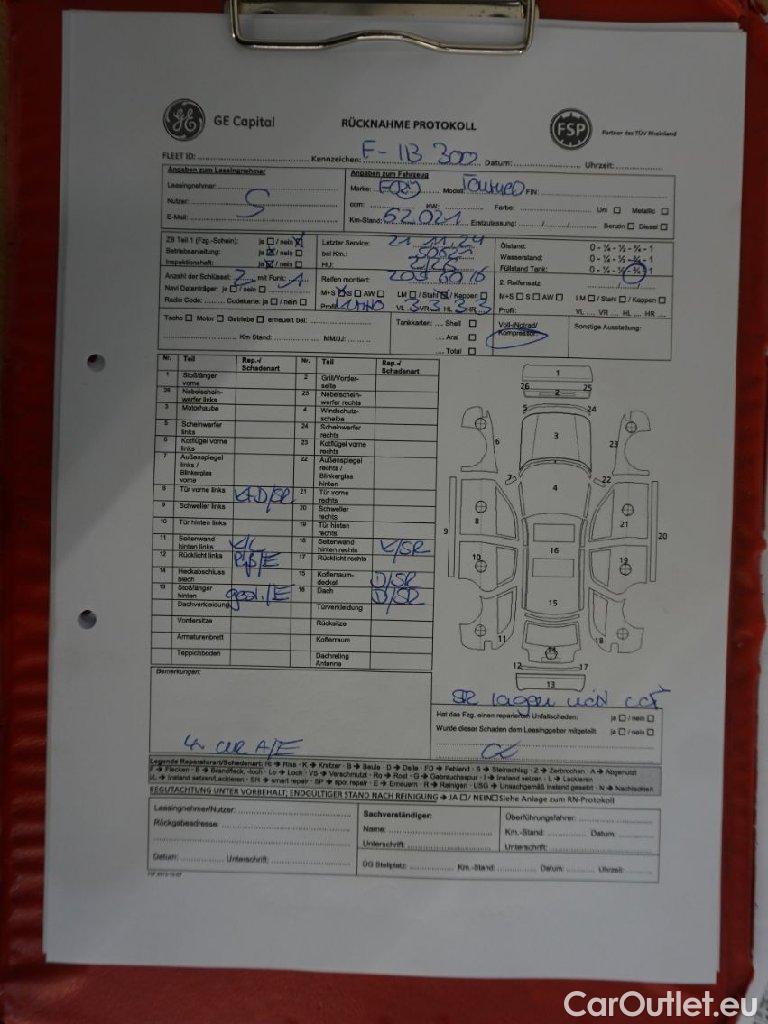 GE Capital
RÜCKNAHME PROTOKOLL
FSP
Partner des TÜV Rheinland
FLEET ID: Kennzeichen: F-IB 300 Datum: Uhrzeit:
Angaben zum Leasingnehmer
Leasingnehmer:
Nutzer: S
E-Mail:
Angaben zum Fahrzeug
Marke: FORD Modell: Tourneo FIN:
ccm: kW: Farbe: Uni Metallic
Km-Stand: 52021 Erstzulassung: Benzin Diesel
ZB Teil 1 (Fzg.-Schein): ja / nein
Betriebsanleitung: ja / nein
Inspektionsheft: ja / nein
Letzter Service: 21 11 24
bei Km.:
HU:
Ölstand: 0 - ¼ - ½ - ¾ - 1
Wasserstand: 0 - ¼ - ½ - ¾ - 1
Füllstand Tank: 0 - ¼ - ½ - ¾ - 1
Anzahl der Schlüssel: 2 mit Funk: 1
Navi Datenträger ja / nein
Radio Code: Codekarte: ja / nein
Reifen montiert:
M+S S AW LM / Stahl / Kappen
Profil: VL 3 VR 3 HL 3 HR 3
2. Reifensatz
M+S S AW LM / Stahl / Kappen
Profil: VL VR HL HR
Tacho Motor Getriebe erneuert bei:
Km-Stand: MM/JJ:
Tankkarten: Shell
Aral
Total
Voll-/Notrad/
Kompressor
Sonstige Ausstattung:
Nr. Teil Rep.-/ Schadenart Nr. Teil Rep.-/ Schadenart
1 Stoßfänger vorne 2 Grill/Vorderseite
26 Nebelscheinwerfer links 25 Nebelscheinwerfer rechts
3 Motorhaube 4 Windschutzscheibe
5 Scheinwerfer links 24 Scheinwerfer rechts
6 Kotflügel vorne links 23 Kotflügel vorne rechts
7 Außenspiegel links / Blinkerglas vorne 22 Außenspiegel rechts / Blinkerglas hinten
8 Tür vorne links K+D/SR 21 Tür vorne rechts
9 Schweller links 20 Schweller rechts
10 Tür hinten links 19 Tür hinten rechts
11 Seitenwand hinten links 18 Seitenwand hinten rechts K/SR
12 Rücklicht links 17 Rücklicht rechts
14 Heckabschlussblech 15 Kofferraumdeckel D/SR
13 Stoßfänger hinten 16 Dach D/SR
Dachverkleidung Türverkleidung
Vordersitze Rücksitze
Armaturenbrett Kofferraum
Teppichboden Dachreling Antenne
Bemerkungen:
Hat das Fzg. einen reparierten Unfallschaden: ja / nein
Wurde dieser Schaden dem Leasinggeber mitgeteilt ja / nein
Legende Reparaturart/Schadenart: Ri → Riss - K → Kratzer - B → Beule - D → Delle - FO → Fehlend - S → Steinschlag - Z → Zerbrochen - A → Abgenutzt
F → Flecken - B → Brandfleck, -loch - Lo → Loch - VS → Verschmutzt - Ro → Rost - G → Gebrauchsspur - I → Instand setzen - L → Lackieren
I/L → Instand setzen/Lackieren - SR → smart repair - SP → spot repair - E → Erneuern - R → Reinigen - USG → Unsachgemäß instand gesetzt - N → Nachlacken
BEGUTACHTUNG UNTER VORBEHALT; ENDGÜLTIGER STAND NACH REINIGUNG → JA / NEIN Siehe Anlage zum RN-Protokoll
Leasingnehmer/Nutzer:
Rückgabeadresse:
Datum: Unterschrift:
Sachverständiger:
Name:
Unterschrift:
Überführungsfahrer:
Km.-Stand: Datum:
Unterschrift:
GG Stellplatz: Km.-Stand: Datum: Uhrzeit:
CarOutlet.eu